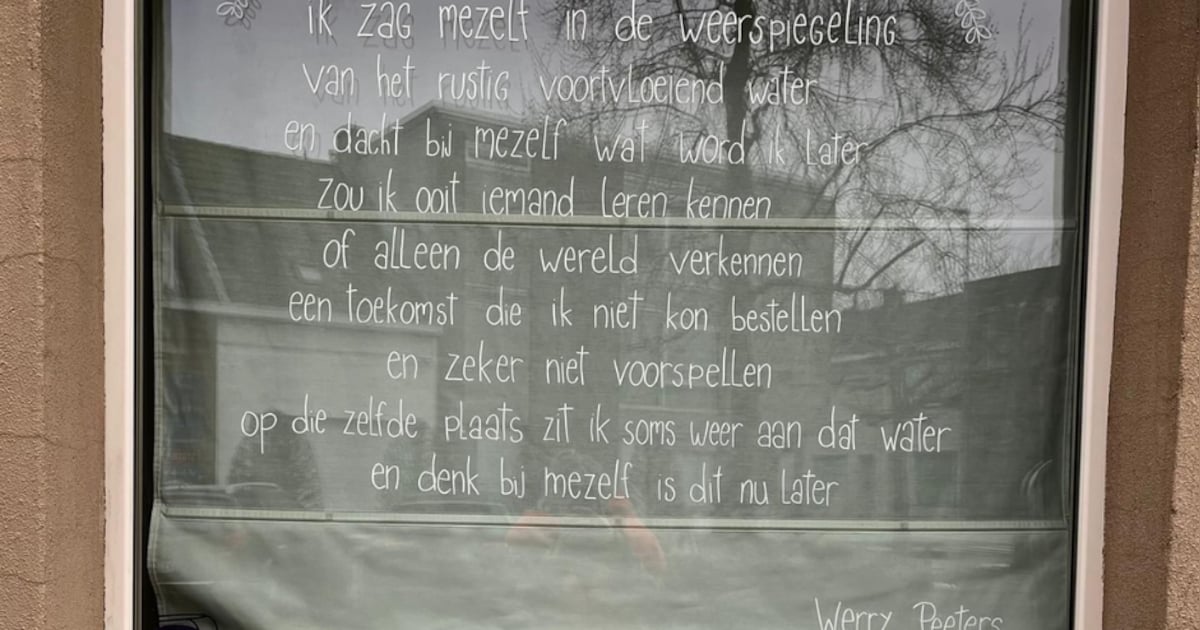 ik zag mezelf in de weerspiegeling
van het rustig voortvloeiend water
en dacht bij mezelf wat word ik later
zou ik ooit iemand leren kennen
of alleen de wereld verkennen
een toekomst die ik niet kon bestellen
en zeker niet voorspellen
op die zelfde plaats zit ik soms weer aan dat water
en denk bij mezelf is dit nu later
Werry Peeters